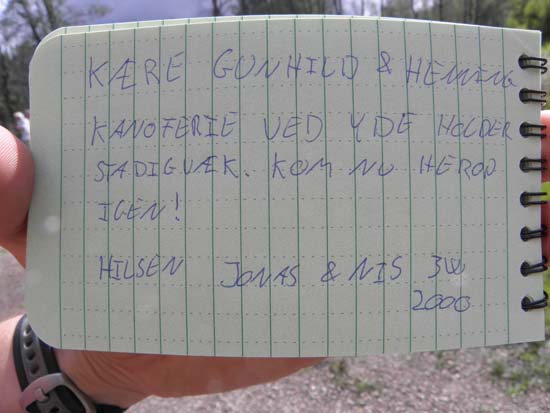 KÆRE GUNHILD & HENNING
KANOFERIE VED YDE HOLDER
STADIGVÆK. KOM NU HEROP
IGEN!
HILSEN JONAS & NIS 3W
2000